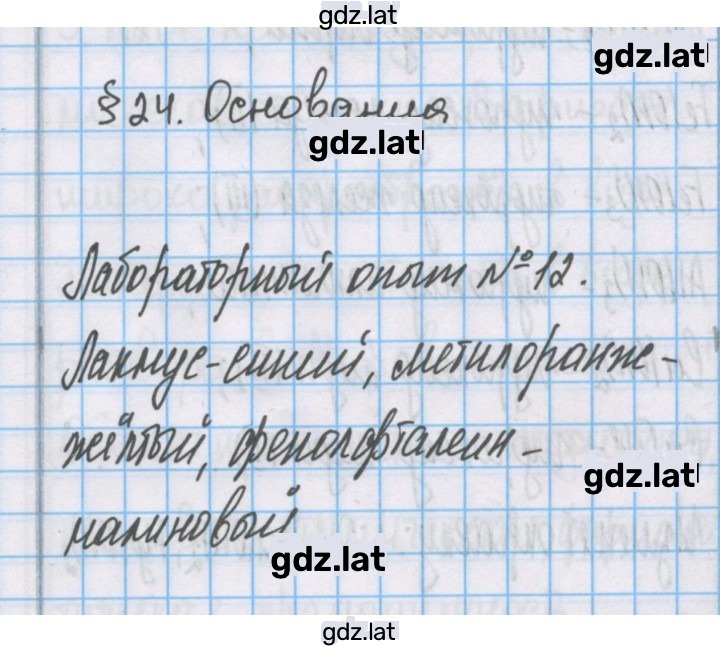 gdz.lat
gdz.lat
§ 24. Основания
gdz.lat
Лабораторный опыт №12.
Лакмус-синий, метилоранж-
жёлтый, фенолфталеин-
gdz.lat
малиновый
gdz.lat
gdz.lat